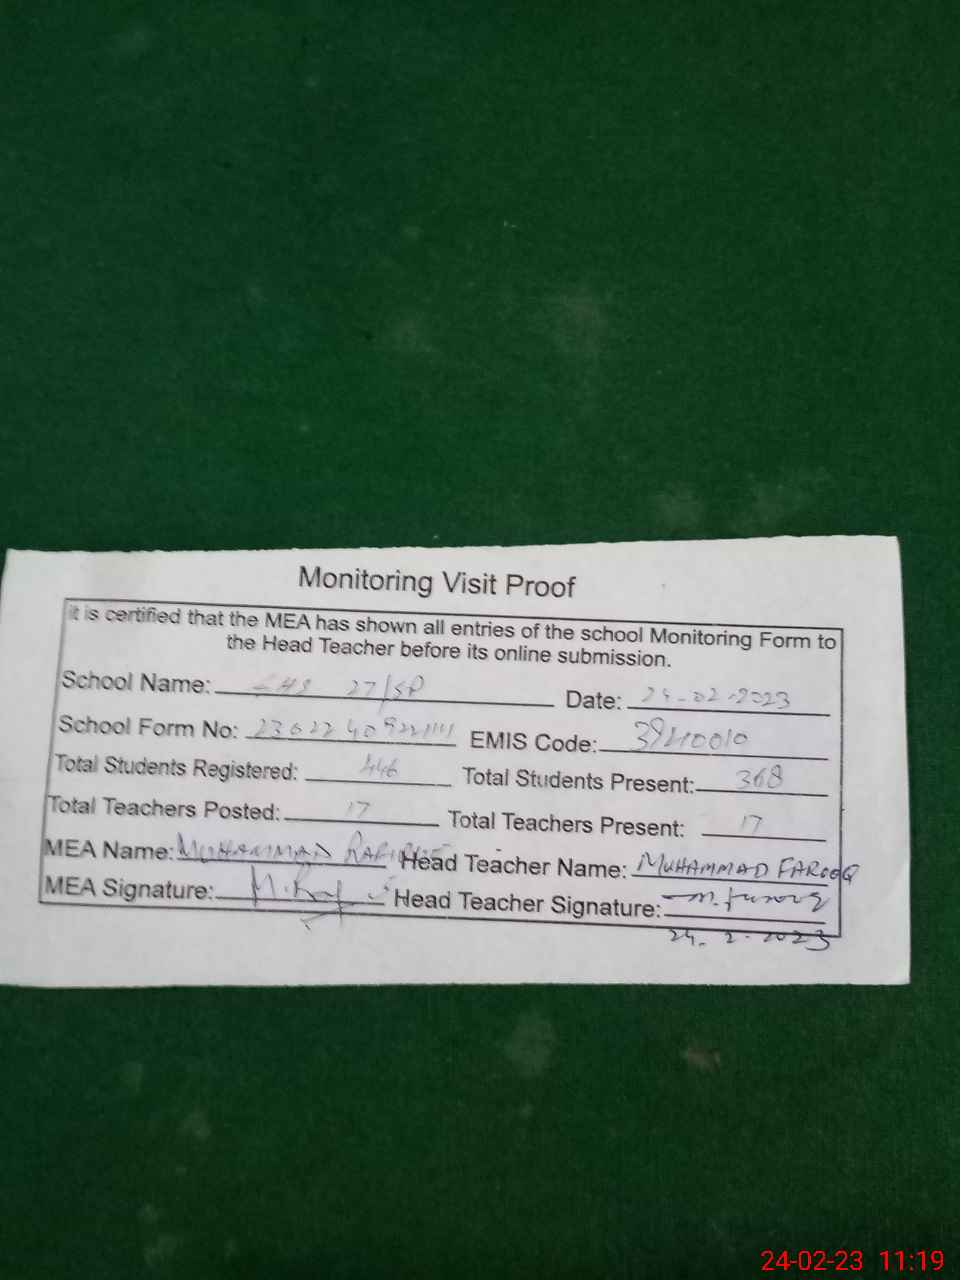 Monitoring Visit Proof
it is certified that the MEA has shown all entries of the school Monitoring Form to
the Head Teacher before its online submission.
School Name: 27/SP Date: 24-02-2023
School Form No: EMIS Code: 39210010
Total Students Registered: 446 Total Students Present: 368
Total Teachers Posted: 17 Total Teachers Present: 17
MEA Name: MUHAMMAD Head Teacher Name: MUHAMMAD FAROOQ
MEA Signature: Head Teacher Signature: M. Farooq
24-2-2023
24-02-23 11:19